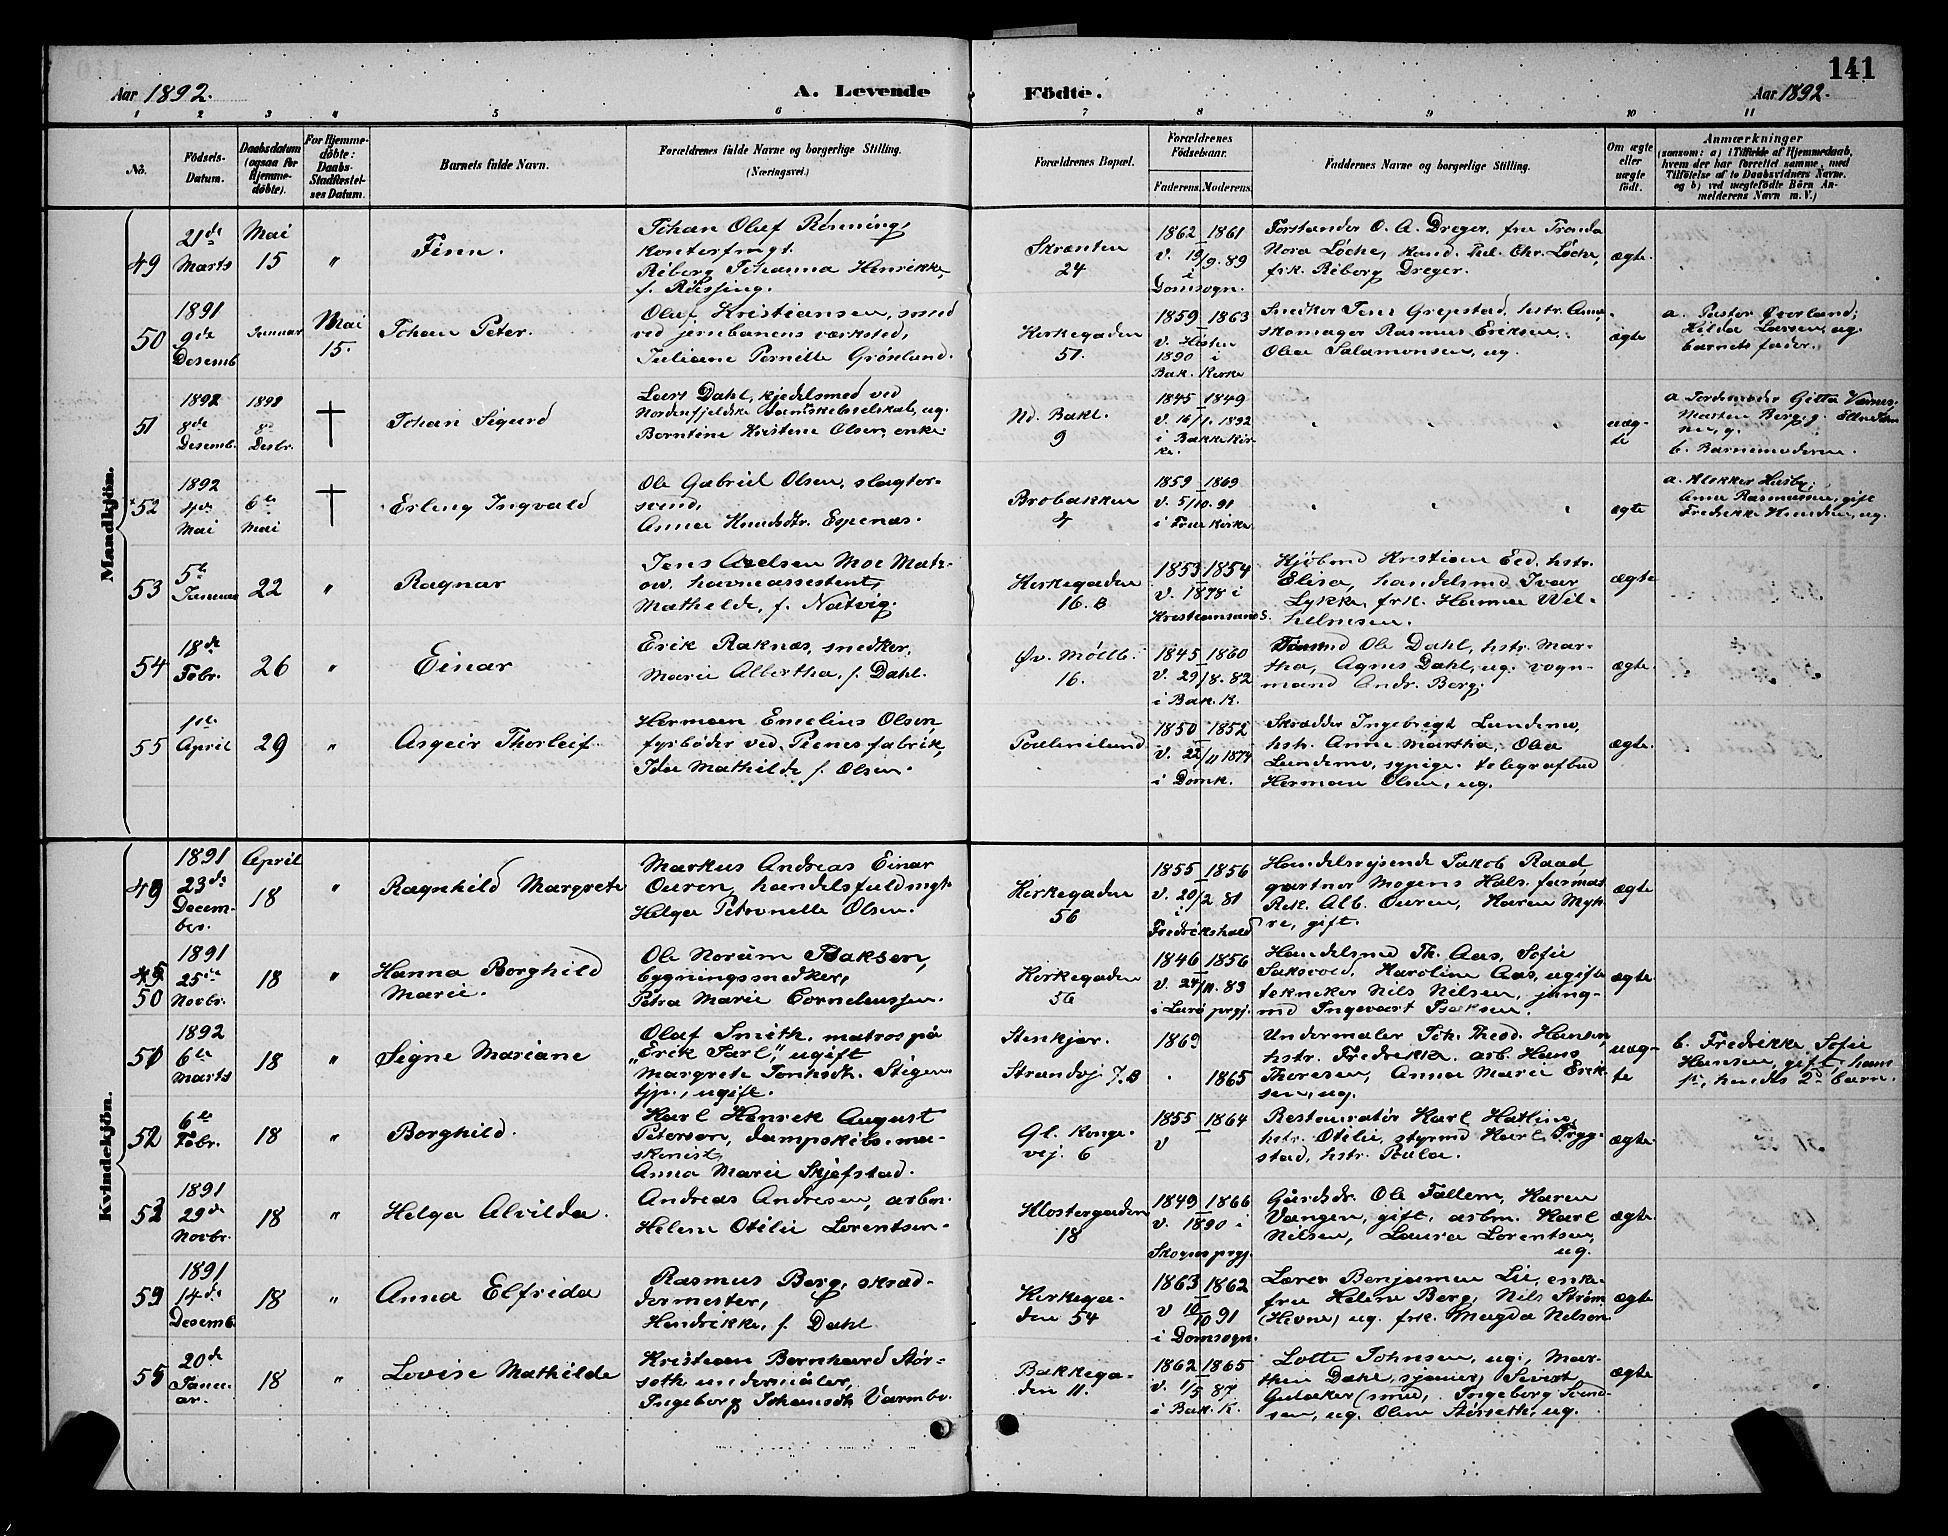 141
Aar 1892.
A. Levende
Födte.
Aar 1892.
1 2 3 4 5 6 7 8 9 10 11
No.
Födsels-
Datum.
Daabsdatum
(ogsaa for
Hjemme-
döbte).
For Hjemme-
döbte:
Daabs-
Stadfæstel-
ses Datum.
Barnets fulde Navn.
Forældrenes fulde Navne og borgerlige Stilling.
(Næringsvei.)
Forældrenes Bopæl.
Forældrenes
Födselsaar.
Faderens. Moderens.
Faddernes Navne og borgerlige Stilling.
Om ægte
eller
uægte
födt.
Anmærkninger
(saasom: a) i Tilfælde af Hjemmedaab,
hvem der har forrettet samme, med
Tilföielse af to Daabsvidners Navne,
og b) ved uægtefödte Börn An-
melderens Navn m. V.)
Mandkjön.
49
21de
Marts
Mai
15
"
Finn.
Johan Oluf Rönning,
kontorfmgt.
Riborg Johanna Henrikke,
f. Rössing.
Skrænten
24
1862 – 1861
v. 19/9. 89
i
Domsogn.
Forstander O. A. Dreger, fru Tronda
Nora Löche, kand. Chr. Löche,
frk. Riborg Dreger.
ægte.
50
1891
9de
Desemb.
Januar
Mai
15.
Johan Peter.
Oluf Kristiansen, smed
ved jernbanens værksted,
Juliane Pernille Grönlund.
Kirkegaden
51.
1859 – 1863
v. Hösten
1890 i
Bak. Kirke
Snedker Jens Grepstad, hstr. Anna,
skomager Rasmus Eriksen,
Olea Salamonsen, ug.
ægte
a. Pastor Överland;
Hilda Larsen, ug.
barnets fader.
51
1892
8de
Desemb.
8de
Desbr.
†
Johan Sigurd
Lars Dahl, kjedelsmed ved
Nordenfjeldske Damskibsselskab, ug.
Berntine Kristene Olsen, enke
Nd. Bakl.
9
1845 – 1849
v. 16/1. 1892
i Bakke Kir-
ke.
uæg-
te
a. Jordemoder Gitta Værnes,
Marten Berg, g.
b. Barnemoderen.
52
1892
4de
Mai
6te
Mai
†
Erling Ingvald
Ole Gabriel Olsen, slagter-
svend,
Anna Knudsdtr. Espenæs.
Brobakken
4
1859 – 1869
v. 5/10. 91
i Frue Kirke
ægte
a. Klokker Husby;
Anna Rasmussen, gift
Fredrikke ug.
53
5te
Januar
22
"
Ragnar
Jens Axelsen Moe Math-
havneassistent,
Mathilde, f. Natvig.
Kirkegaden
16. B
1853 – 1854
v. 1878 i
Kristiansand S.
Kjöbmd Kristian Eid, hstr.
Elisa, handelsmd Ivar
Lykke, frk. Hanna Wil-
helmsen.
ægte
54
18de
Febr.
26
"
Einar
Erik Raknæs, snedker,
Marie Albertha, f. Dahl.
Øv. Möllb.
16.
1845 – 1860
v. 29/8. 82
i Bak. K.
Tömmd Ole Dahl, hstr. Mar-
tha, Agnes Dahl, ug. vogn-
mand Andr. Berg.
ægte.
55
1ste
April
29
"
Asgeir Thorleif.
Herman Emelius Olsen
fyrböder ved Peenes fabrik,
Ida Mathilde f. Olsen.
Paulinelund
1850 – 1852
v. 22/11 1874
i Domk.
Skrædder Ingebrigt Lundemo,
hstr. Anne Martha, Olea
Lundemo, sypige. telegrafbud
Herman Olsen, ug.
ægte.
Kvindekjön.
49
1891
23de
Decem-
ber.
April
18
"
Ragnhild Margrete
Markus Andreas Einar
Ouren, handelsfuldmgt.
Helga Petronelle Olsen.
Kirkegaden
56
1855 – 1856
v. 20/2 81
i
Fredrikshald
Handelsrejsende Jakob Raad,
gartner Mogens Hals.
Rek. Alb. Ouren, Karen Myh-
re, gift.
ægte
50
1891
25de
Novbr.
18
"
Hanna Borghild
Marie.
Ole Norum Isaksen,
bygningssnedker,
Petra Marie Corneliussen.
Kirkegaden
56
1846 – 1856
v. 24/11. 83
i Lurö prgj.
Handelsmd Th. Aas, Sofie
Saksvold, Karoline Aas, ugifte
tekniker Nils Nilsen, jung-
md Ingevart Isaksen.
ægte
51
1892
6te
Marts
18
"
Signe Mariane
Olaf Smith, matros på
„Erik Jarl,” ugift
Margrete Tonhsdtr. Stigen
tjp., ugift.
Stenkjær.
Strandvj 7. B
1869
. 1865
Undermaler Joh. Thedd. Hansen,
hstr. Fredrikke. arb. Hans
Thoresen, Anna Marie Erik-
sen, ug.
uæg-
te
b. Fredrikke Sofie
Hansen, gift, hans
1ste, hendes 2det barn.
52
6te
Febr.
18
"
Borghild.
Karl Henrik August
Petersen, dampskibs. ma-
skinist,
Anna Marie Skjefstad.
Gl. Konge-
vej. 6
1855 – 1864
v
Restauratör Karl Hatling,
hstr. Otilie, styrmd Karl Trygg-
stad, hstr. Paula.
ægte.
53
1891
29de
Novbr.
18
"
Helga Alvilda.
Andreas Andresen, arbm.
Helene Otilie Lorentsen
Klostergaden
18
1849 – 1866
v. 1890 i
Skogns prgj.
Gårdsdr. Ole Fallem, Karen
Vangen, gift, arbm. Karl
Nilsen, Laura Lorentsen,
ug.
ægte.
1891
14de
Desemb.
18
"
Anna Elfrida
Rasmus Berg, skræd-
dermester,
Hendrikke, f. Dahl.
Kirkega-
den 54
1863 – 1862
v 10/10 91
i Domsogn.
Lærer Benjamin Lie, enke-
fru Helene Berg, Nils Ström
(Hevne) ug. frk. Magda Nilsen
ægte
55
20de
Janu-
ar.
18
"
Lovise Mathilde
Kristian Bernhard Stör-
seth undermåler,
Ingeborg Johansdtr Varmbo.
Bakkega-
den 11.
1862 – 1865
v. 1/5 87
i Bak. K.
Lotte Johnsen, ug., Mar-
then Dahl, Sivert
Gulaker (smed), Ingeborg Svend-
sen, ug. Oline Störseth, ug.
ægte